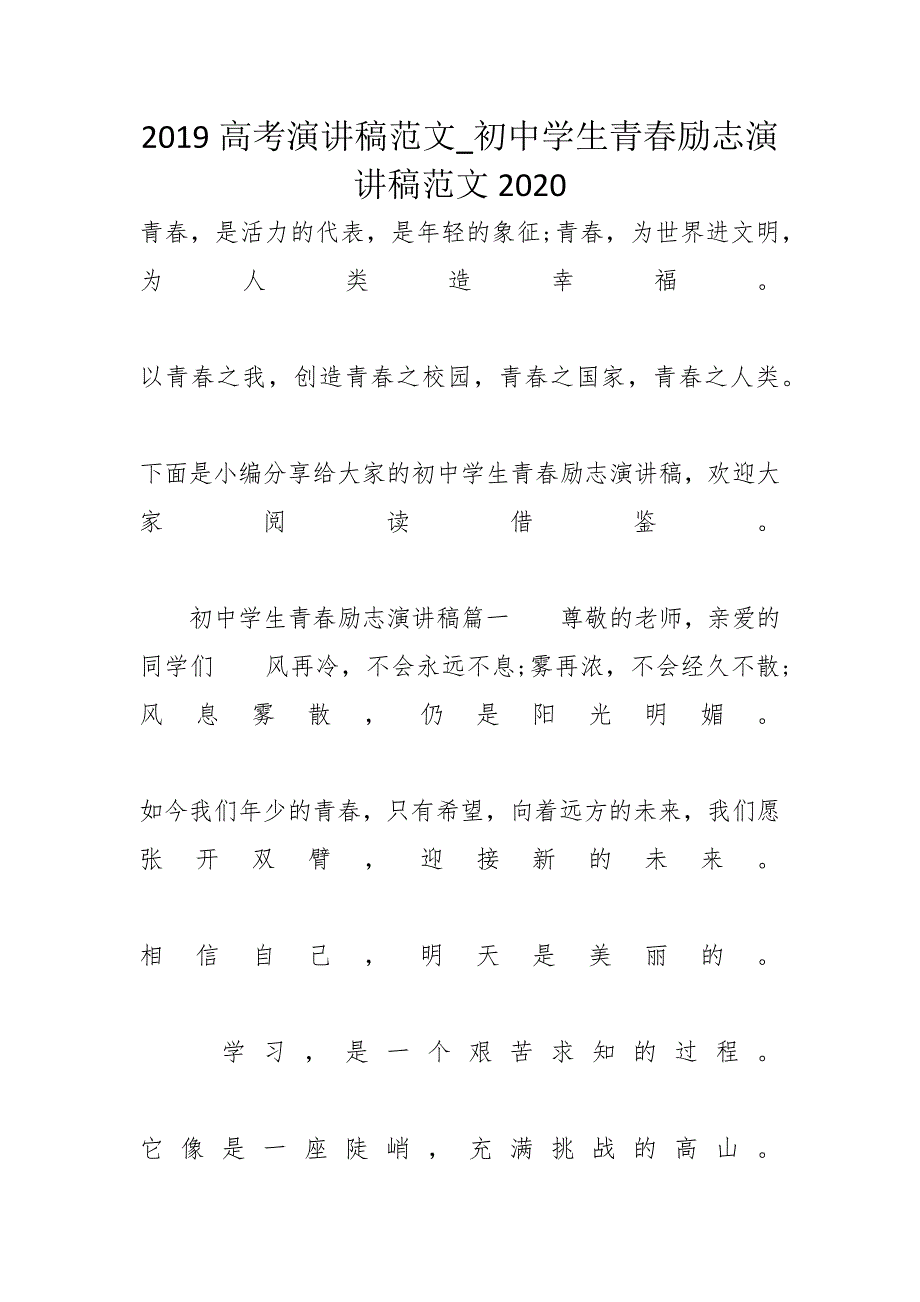 2019 高考演讲稿范文_初中学生青春励志演
讲稿范文 2020
青春，是活力的代表，是年轻的象征;青春，为世界进文明，
为人类造幸福。
以青春之我，创造青春之校园，青春之国家，青春之人类。
下面是小编分享给大家的初中学生青春励志演讲稿，欢迎大
家阅读借鉴。
初中学生青春励志演讲稿篇一　　尊敬的老师，亲爱的
同学们　　风再冷，不会永远不息;雾再浓，不会经久不散;
风息雾散，仍是阳光明媚。
如今我们年少的青春，只有希望，向着远方的未来，我们愿
张开双臂，迎接新的未来。
相信自己，明天是美丽的。
学习，是一个艰苦求知的过程。
它像是一座陡峭，充满挑战的高山。